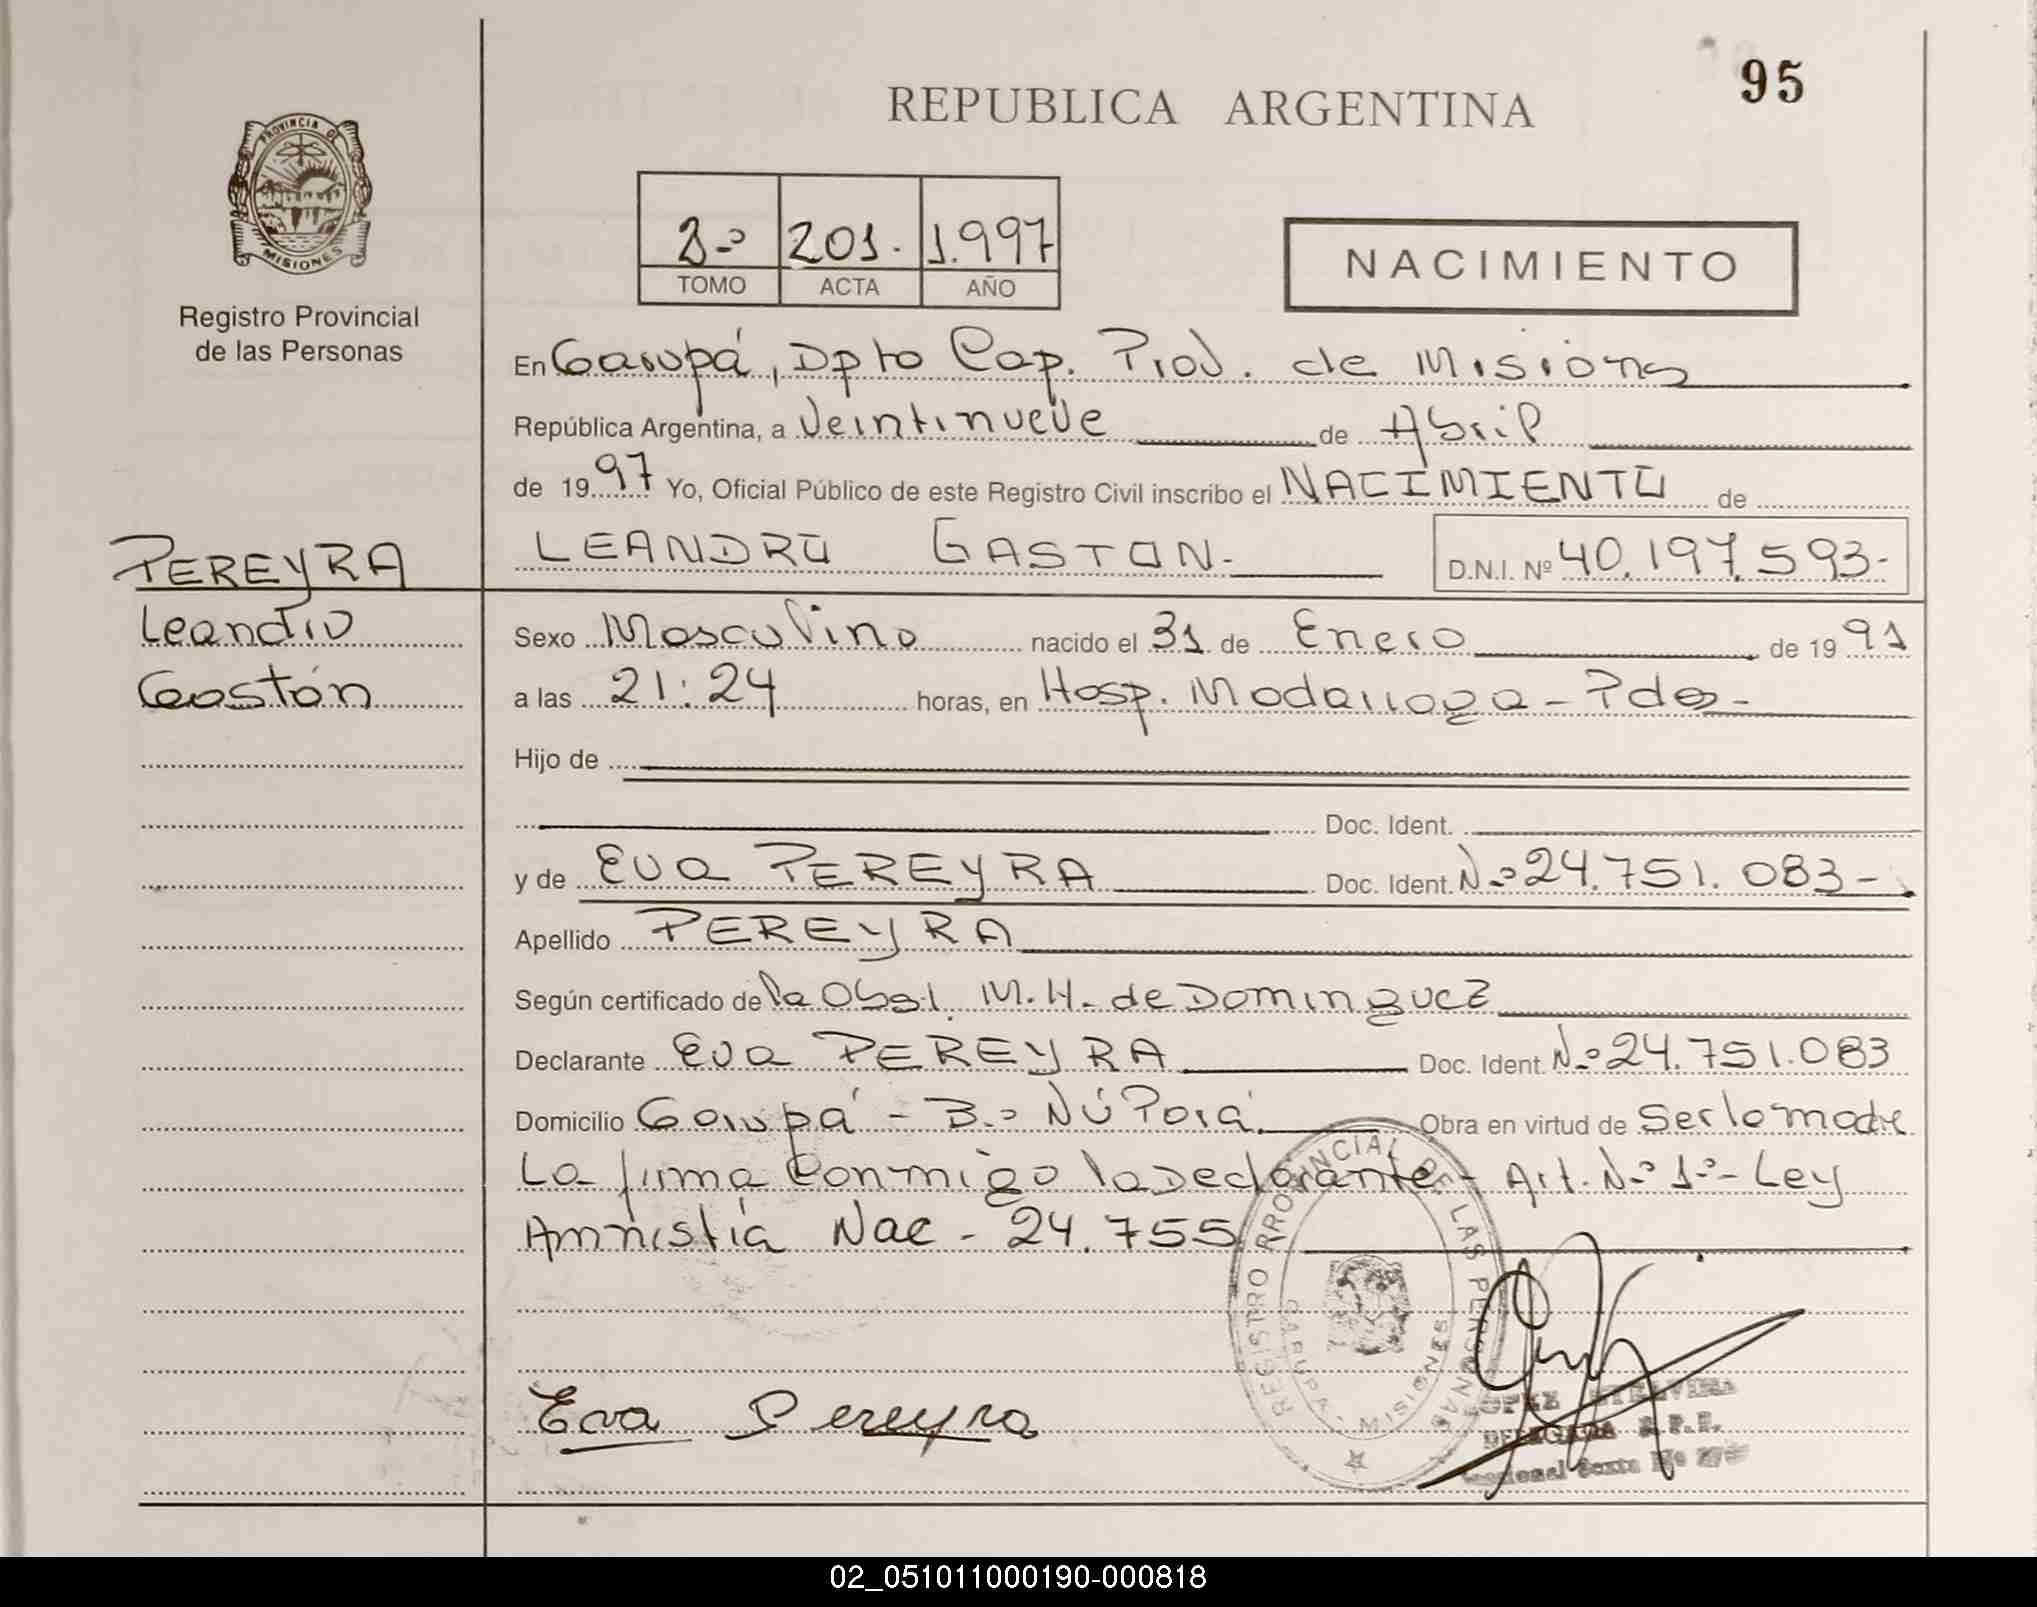 95
REPUBLICA ARGENTINA
PROVINCIA DE
MISIONES
Registro Provincial
de las Personas
2º 201. 1.997
TOMO ACTA AÑO
NACIMIENTO
En Garupá, Dpto Cap. Prov. de Misiones
República Argentina, a Veintinueve de Abril
de 1997 Yo, Oficial Público de este Registro Civil inscribo el NACIMIENTO de
LEANDRO GASTON- D.N.I. Nº 40.197.593-
PEREYRA
Leandro
Gastón
Sexo Masculino nacido el 31 de Enero de 1991
a las 21:24 horas, en Hosp. Madariaga - Pdas-
Hijo de
Doc. Ident.
y de Eva PEREYRA Doc. Ident. Nº 24.751.083-
Apellido PEREYRA
Según certificado de la Obst. M.H. de DOMINGUEZ
Declarante Eva PEREYRA Doc. Ident. Nº 24.751.083
Domicilio Garupá - Bº Ñú Porá. Obra en virtud de Ser la madre
La firma conmigo la Declarante - Art. Nº 1º - Ley
Amnistía Nac - 24.755
REGISTRO PROVINCIAL DE LAS PERSONAS
GARUPA - MISIONES
Eva Pereyra
DELEGADA R.P.P.
02_051011000190-000818